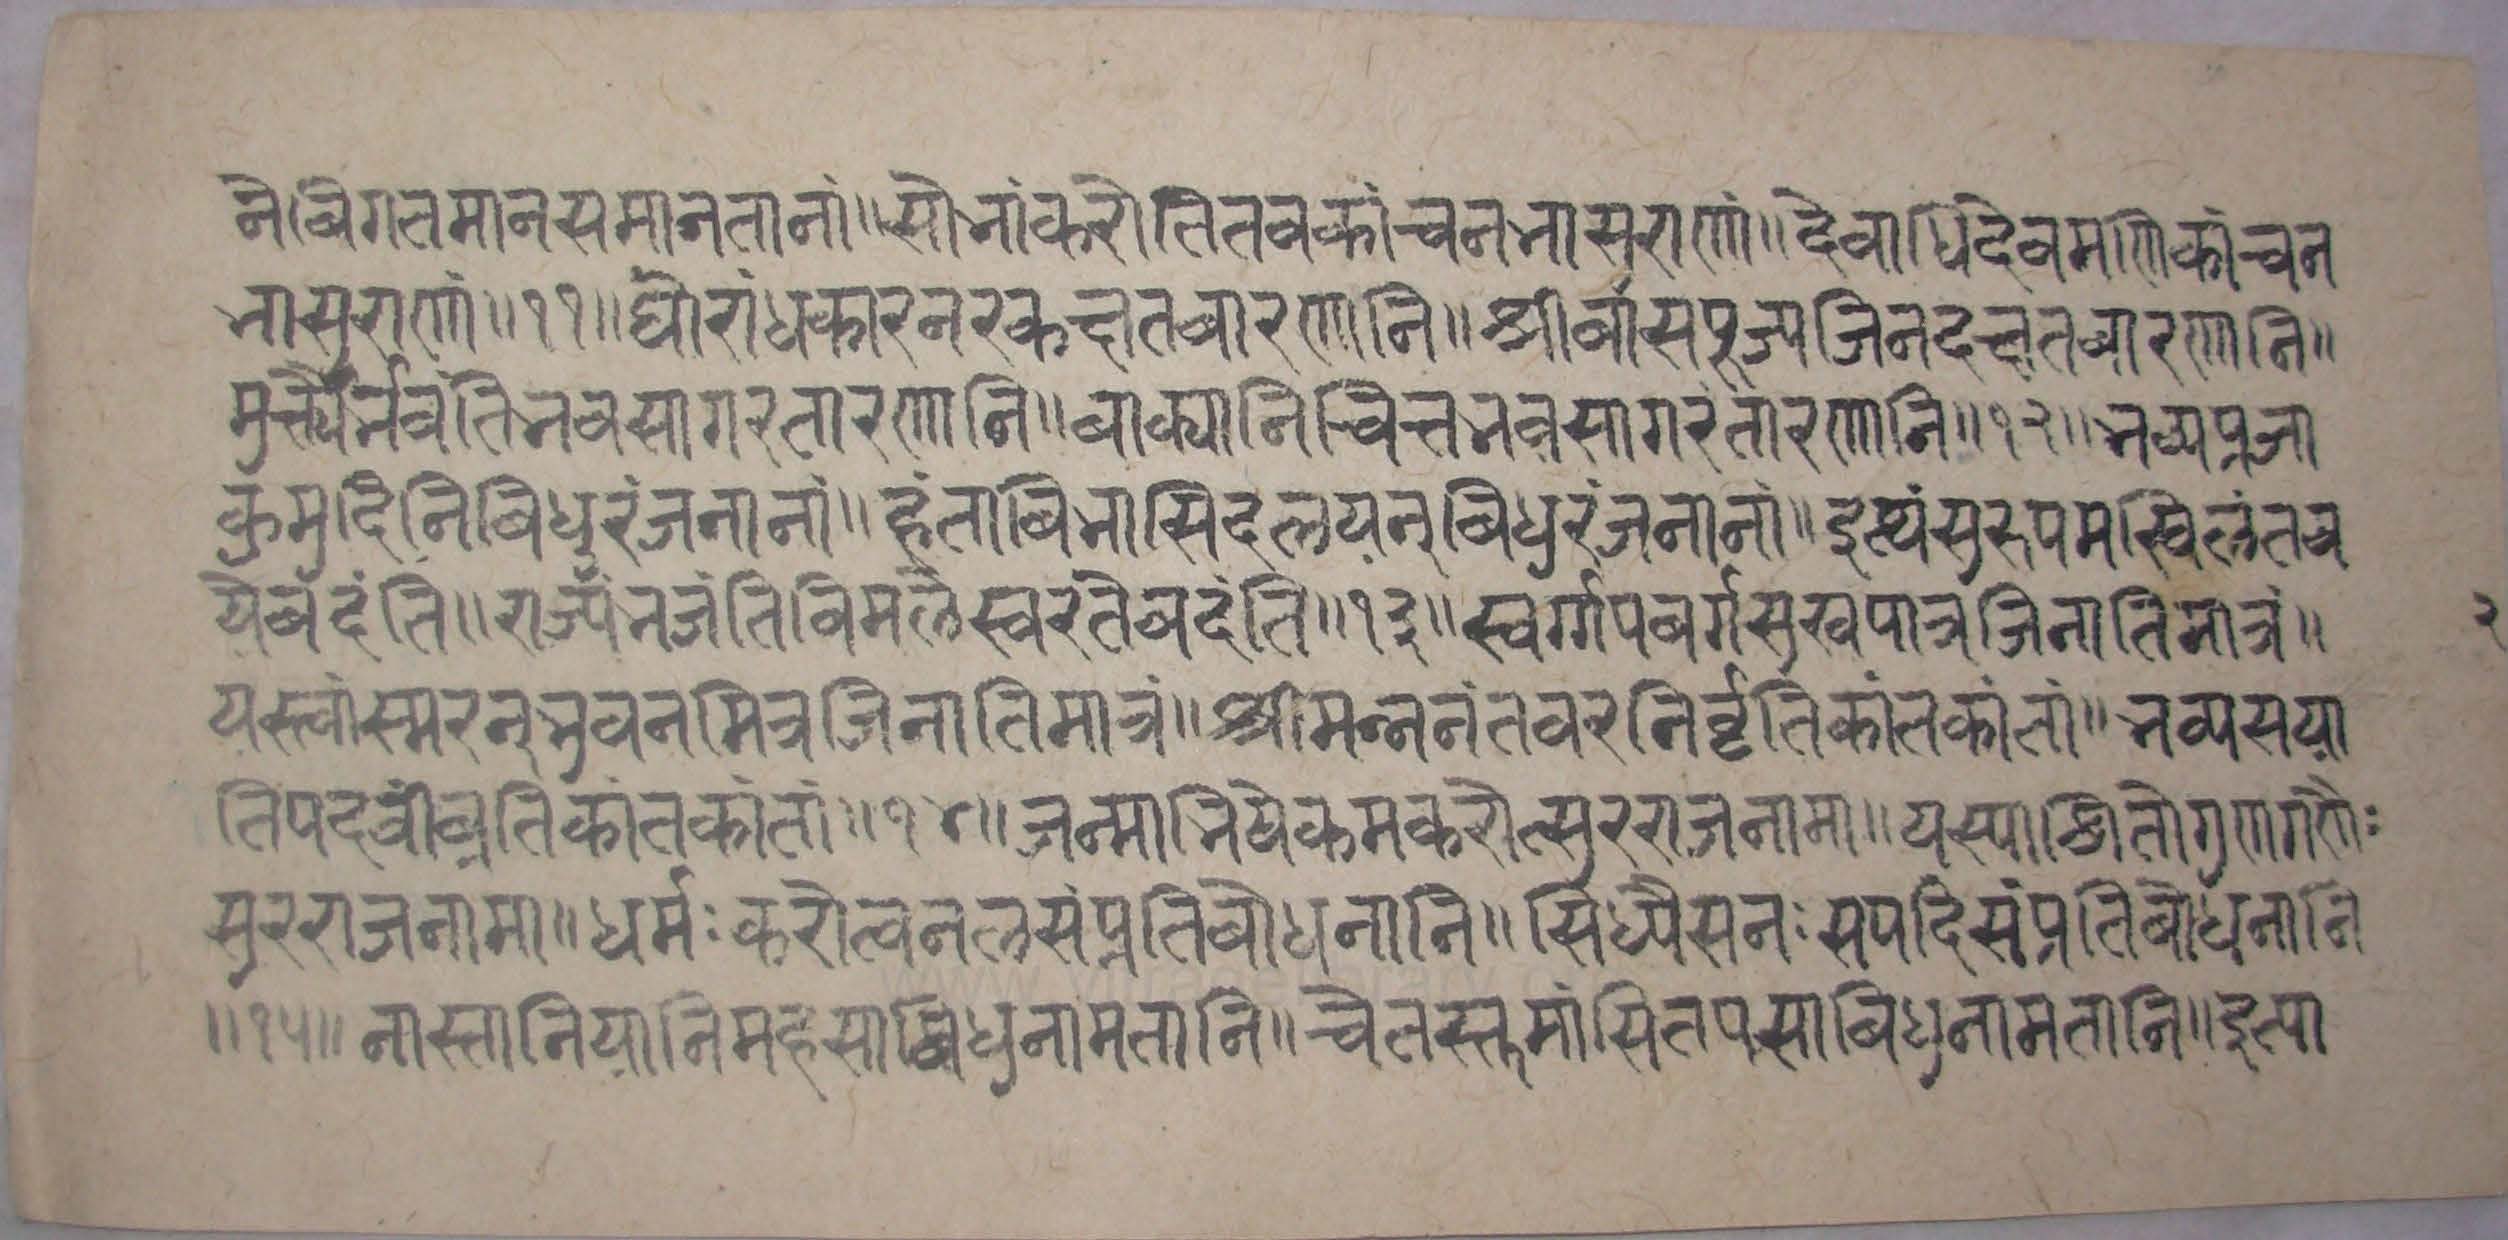 नेविगतमानसमानतानां॥सोभांकरोतितवकांचनभासुराणां॥देवाधिदेवमणिकांचन
भासुराणां॥११॥घोरांधकारनरकक्षतवारणानि॥श्रीवासुपूज्यजिनदक्षतवारणानि॥
मुक्त्यैर्भवंतिभवसागरतारणानि॥वाक्यानिचित्तभवसागरतारणानि॥१२॥भव्यप्रजा
कुमुदिनिविधुरंजनानां॥हंताविभासिदलयन्विधुरंजनानां॥इत्थंसुरूपमखिलंतव
येवदंति॥राज्यंभजंतिविमलेस्वरतेवदंति॥१३॥स्वर्गापवर्गसुखपात्रजिनातिमात्रं॥
यस्त्वांस्मरन्भुवनमित्रजिनातिमात्रं॥श्रीमन्ननंतवरनिर्वृतिकांतकांतां॥भव्यसया
तिपदवींव्रतिकांतकांतां॥१४॥जन्माभिषेकमकरोत्सुरराजनामा॥यस्याश्रितोगुणगणैः
सुरराजनामा॥धर्मःकरोत्वनलसंप्रतिबोधनानि॥सिध्यैसनःसपदिसंप्रतिबोधनानि
॥१५॥नास्तानियानिमहसाविधुनामतानि॥चेतस्तमांसितपसाविधुनामतानि॥इत्या
२